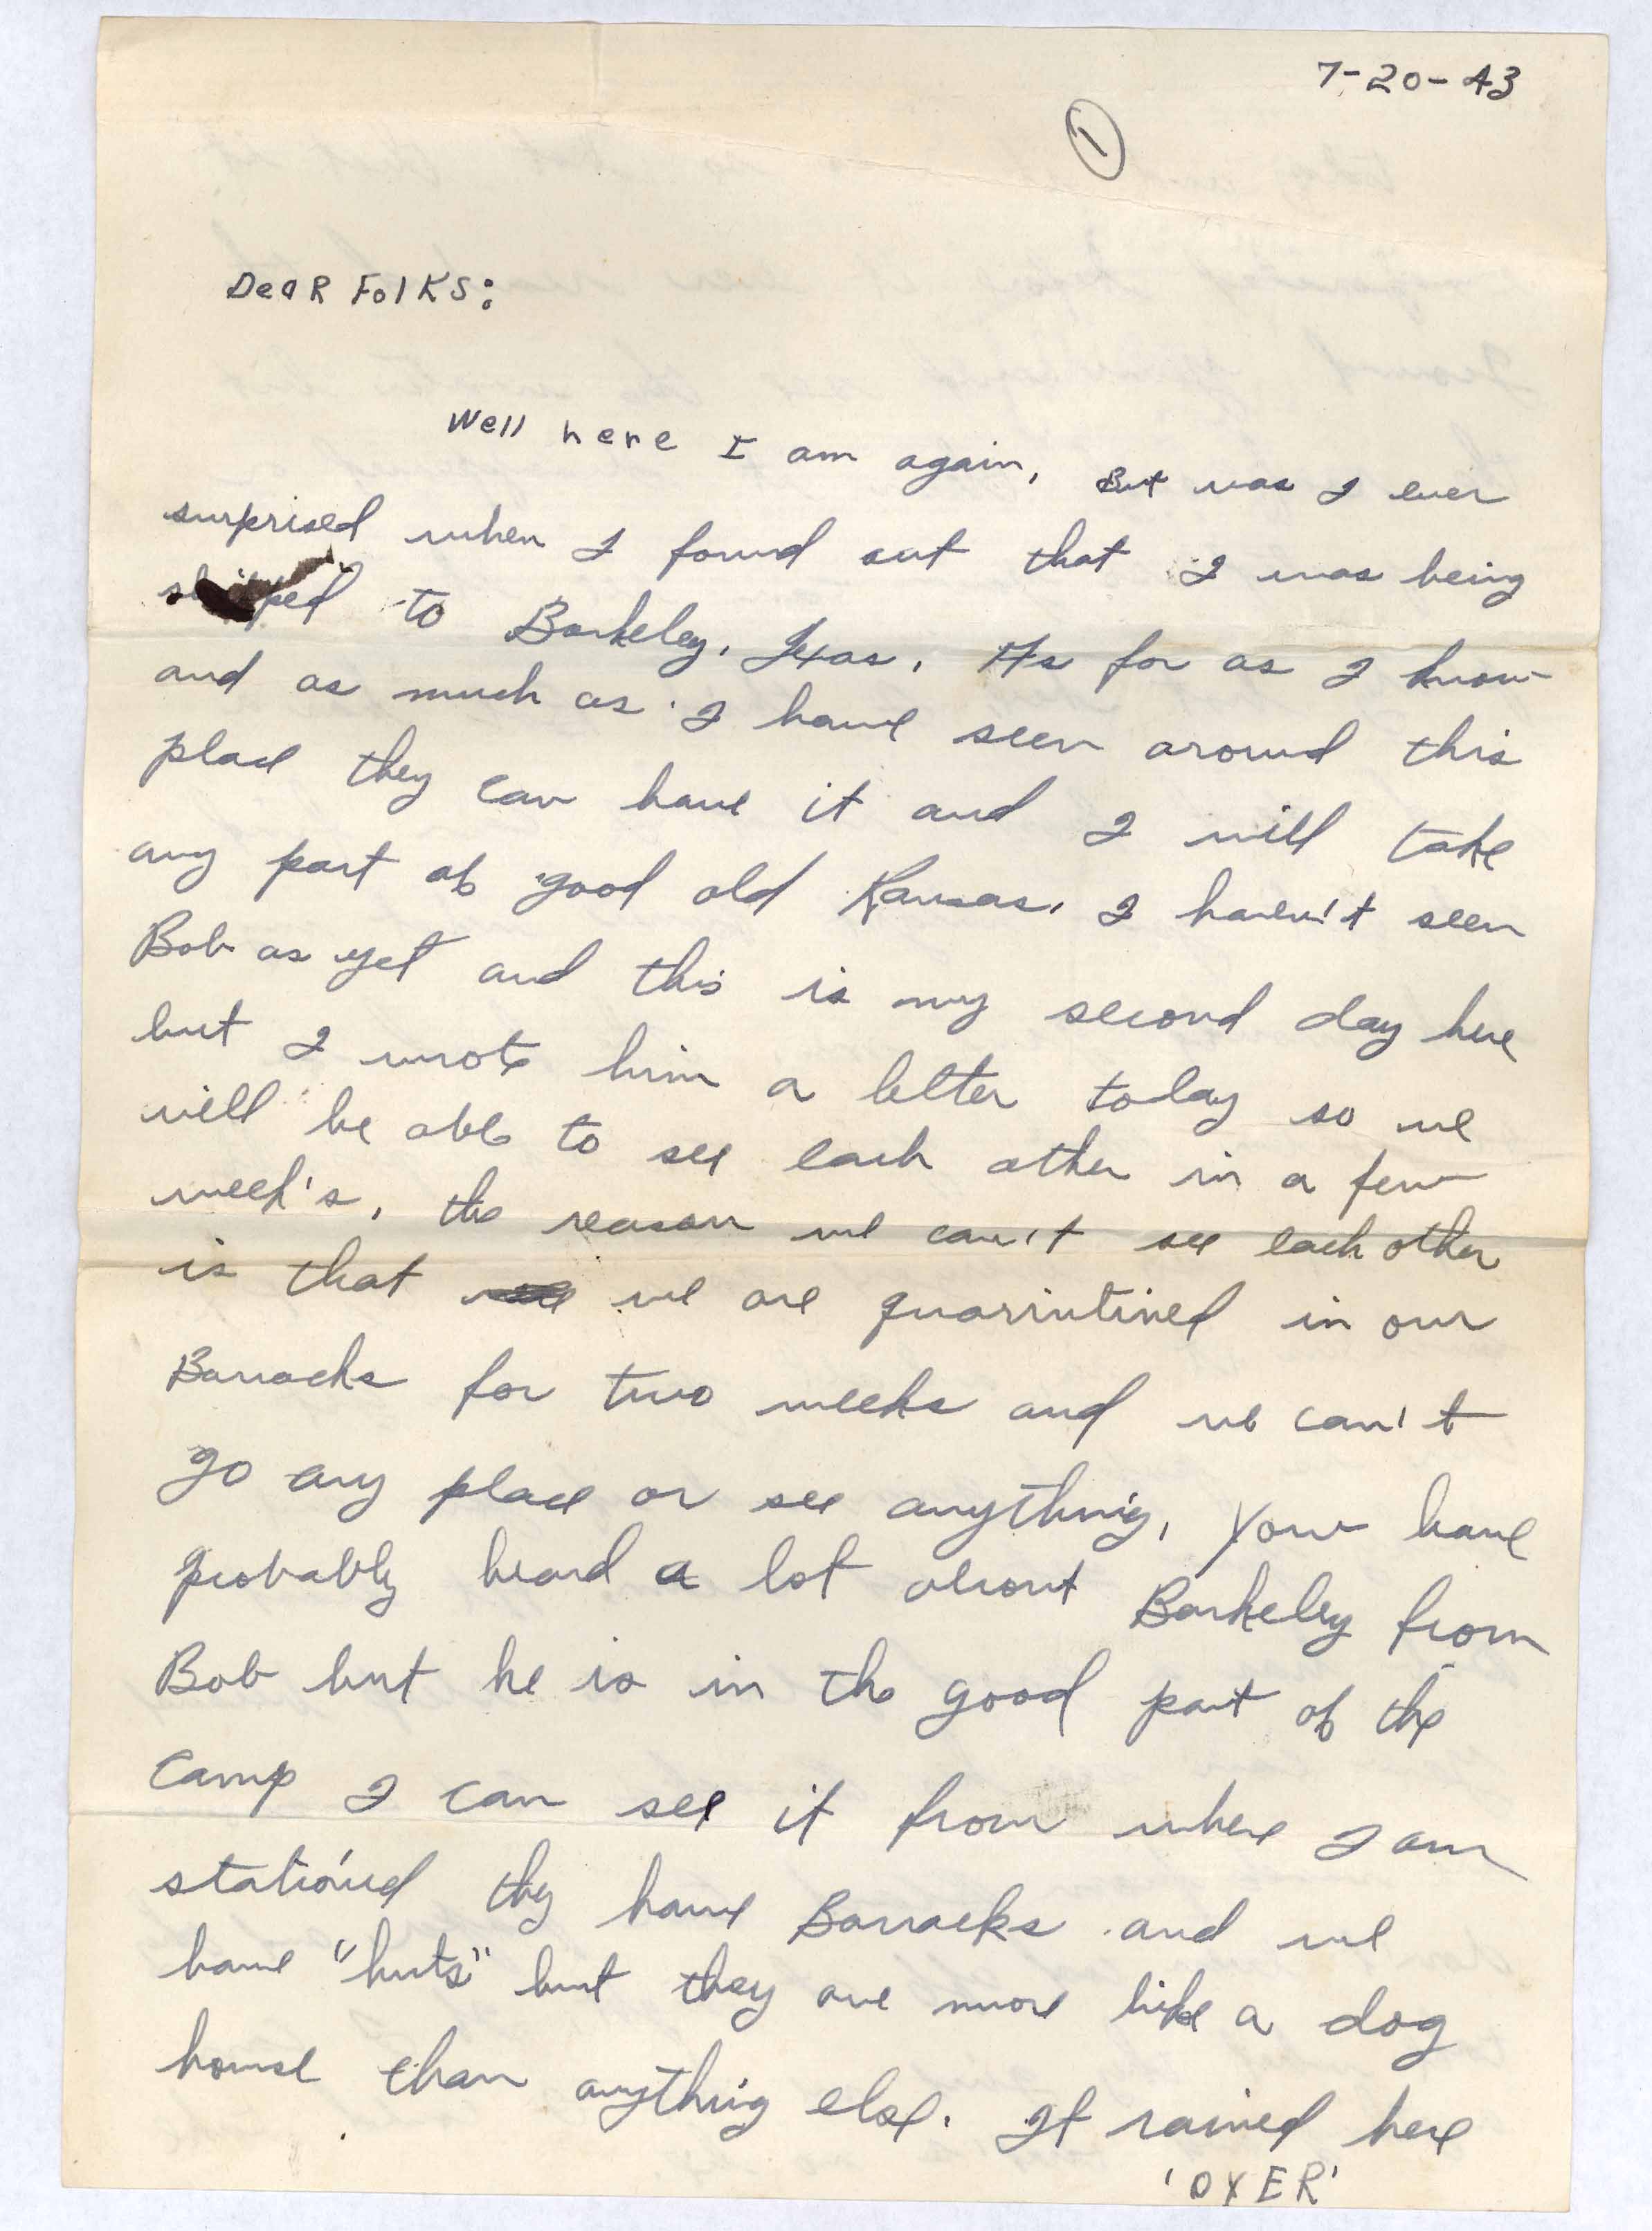 7-20-43
1
Dear Folks:
Well here I am again, But was I ever
surprised when I found out that I was being
shipped to Barkeley, Texas. As for as I know
and as much as I have seen around this
place they can have it and I will take
any part of good old Kansas. I haven't seen
Bob as yet and this is my second day here
but I wrote him a letter today so we
will be able to see each other in a few
week's, the reason we can't see each other
is that we are quarintined in our
Barracks for two weeks and we can't
go any place or see anything, You have
probably heard a lot about Barkeley from
Bob but he is in the good part of the
Camp I can see it from where I am
stationed they have Barracks and we
have "huts" but they are more like a dog
house than anything else. It rained here
'OVER'